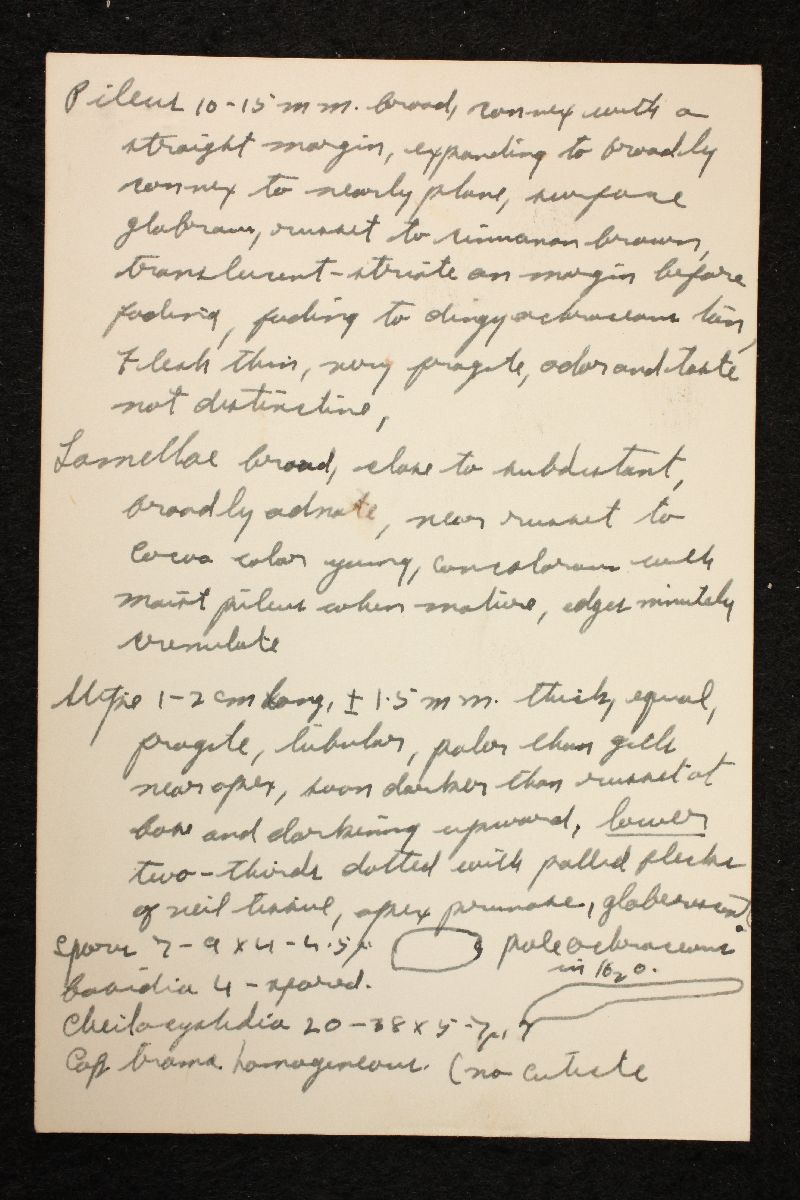 Pileus 10-15 mm. broad, convex with a
straight margin, expanding to broadly
convex to nearly plane, surface
glabrous, russet to cinnamon brown,
translucent-striate on margin before
fading, fading to dingy ochraceous tan,
Flesh thin, very fragile, odor and taste
not distinctive,
Lamellae broad, close to subdistant,
broadly adnate, near russet to
cocoa color young, concolorous with
moist pileus when mature, edges minutely
crenulate
Stipe 1-2 cm long, ± 1.5 mm. thick, equal,
fragile, tubular, paler than gills
near apex, soon darker than russet at
base and darkening upward, lower
two-thirds dotted with pallid flecks
of veil tissue, apex pruinose, glabrescent
Spores 7-9 x 4-4.5 µ pale ochraceous
in H2O.
basidia 4-spored.
Cheilocystidia 20-38 x 5-7µ,
Cap trama homogeneous. (no cuticle